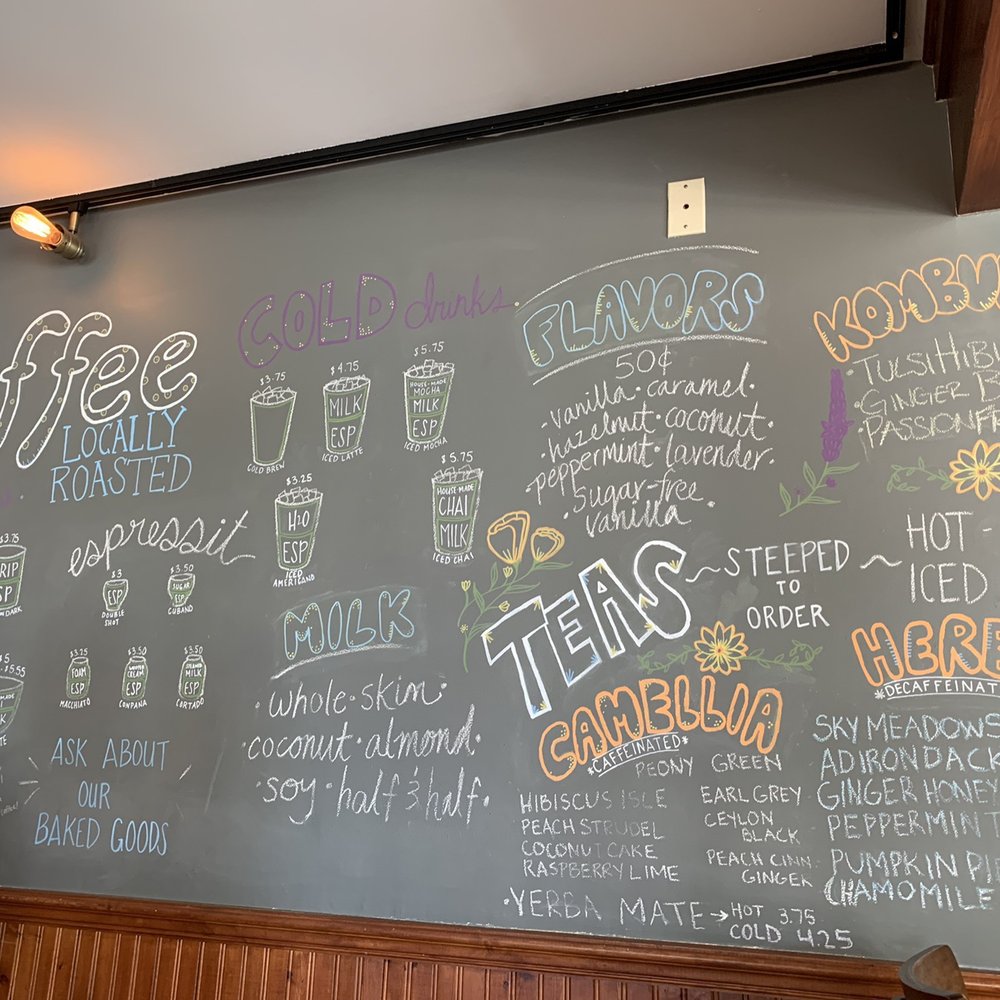 ffee
LOCALLY
ROASTED
$3.75
RIP
DARK
espressit
$3
ESP
DOUBLE
SHOT
$3.50
SUGAR
ESP
CUBANO
$3.25
FOAM
ESP
MACCHIATO
$3.50
WHIPPED
CREAM
ESP
CONPANA
$3.50
STEAMED
MILK
ESP
CORTADO
ASK ABOUT
OUR
BAKED GOODS
COLD drinks
$3.75
COLD BREW
$4.75
MILK
ESP
ICED LATTE
$5.75
HOUSE-MADE
MOCHA
MILK
ESP
ICED MOCHA
$3.25
H2O
ESP
ICED
AMERICANO
$5.75
HOUSE-MADE
CHAI
MILK
ICED CHAI
MILK
•whole•skim•
•coconut•almond•
soy•half & half•
FLAVORS
50¢
vanilla•caramel•
hazelnut•coconut•
•peppermint•lavender•
•sugar-free
vanilla•
KOMBU
•TULSI HIB
•GINGER B
•PASSIONF
TEAS ~STEEPED~
TO
ORDER
HOT-
ICED
CAMELLIA
*CAFFEINATED*
PEONY GREEN
HIBISCUS ISLE
PEACH STRUDEL
COCONUT CAKE
RASPBERRY LIME
EARL GREY
CEYLON
BLACK
PEACH CINN
GINGER
•YERBA MATE → HOT 3.75
COLD 4.25
HERB
*DECAFFEINAT
SKY MEADOWS
ADIRONDACK
GINGER HONEY
PEPPERMINT
PUMPKIN PIE
CHAMOMILE